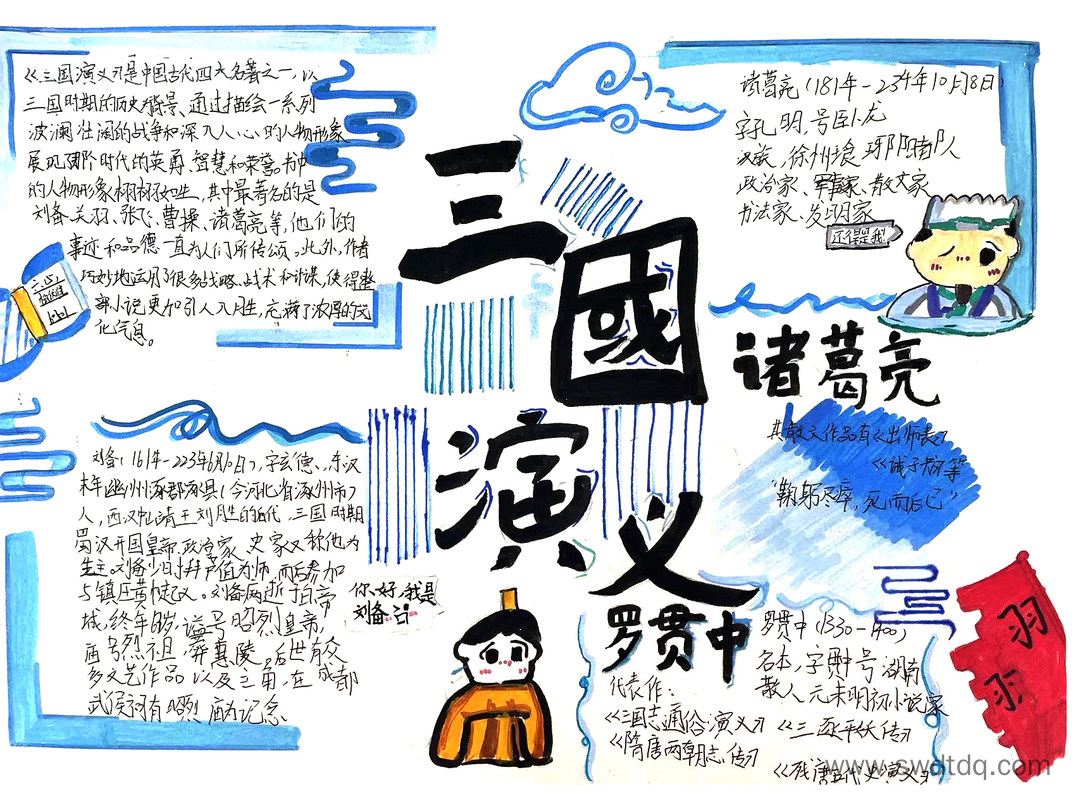 《三国演义》是中国古代四大名著之一，以
三国时期的历史背景、通过描绘一系列
波澜壮阔的战争和深入人心的人物形象
展现了那个时代的英勇、智慧和荣誉。书中
的人物形象栩栩如生，其中最著名的是
刘备、关羽、张飞、曹操、诸葛亮等，他们的
事迹和品德一直为人们所传颂。此外，作者
巧妙地运用了很多战略、战术和计谋，使得整
部小说更加引人入胜，充满了浓厚的文
化气息。
三國演义
诸葛亮（181年-234年10月8日）
字孔明，号卧龙
汉族，徐州琅琊阳都人
政治家、军事家、散文家
书法家、发明家
还得是我
诸葛亮
其散文作品有《出师表》
《诫子书》等
"鞠躬尽瘁，死而后已"
刘备（161年-223年6月10日），字玄德、东汉
末年幽州涿郡涿县（今河北省涿州市）
人，西汉中山靖王刘胜的后代，三国时期
蜀汉开国皇帝、政治家，史家又称他为
先主。刘备少时拜卢植为师，而后参加
与镇压黄巾起义。刘备病逝于白帝
城，终年63岁，谥号昭烈皇帝，
庙号烈祖，葬惠陵。后世有众
多文艺作品以及主角，在成都
武侯祠有昭烈庙为记念
你好，我是
刘备
罗贯中
代表作：
《三国志通俗演义》
《隋唐两朝志传》
罗贯中（1330-1400）
名本，字贯中号湖海
散人元末明初小说家
《三遂平妖传》
《残唐五代史演义》
羽
羽
www.swdtdq.com